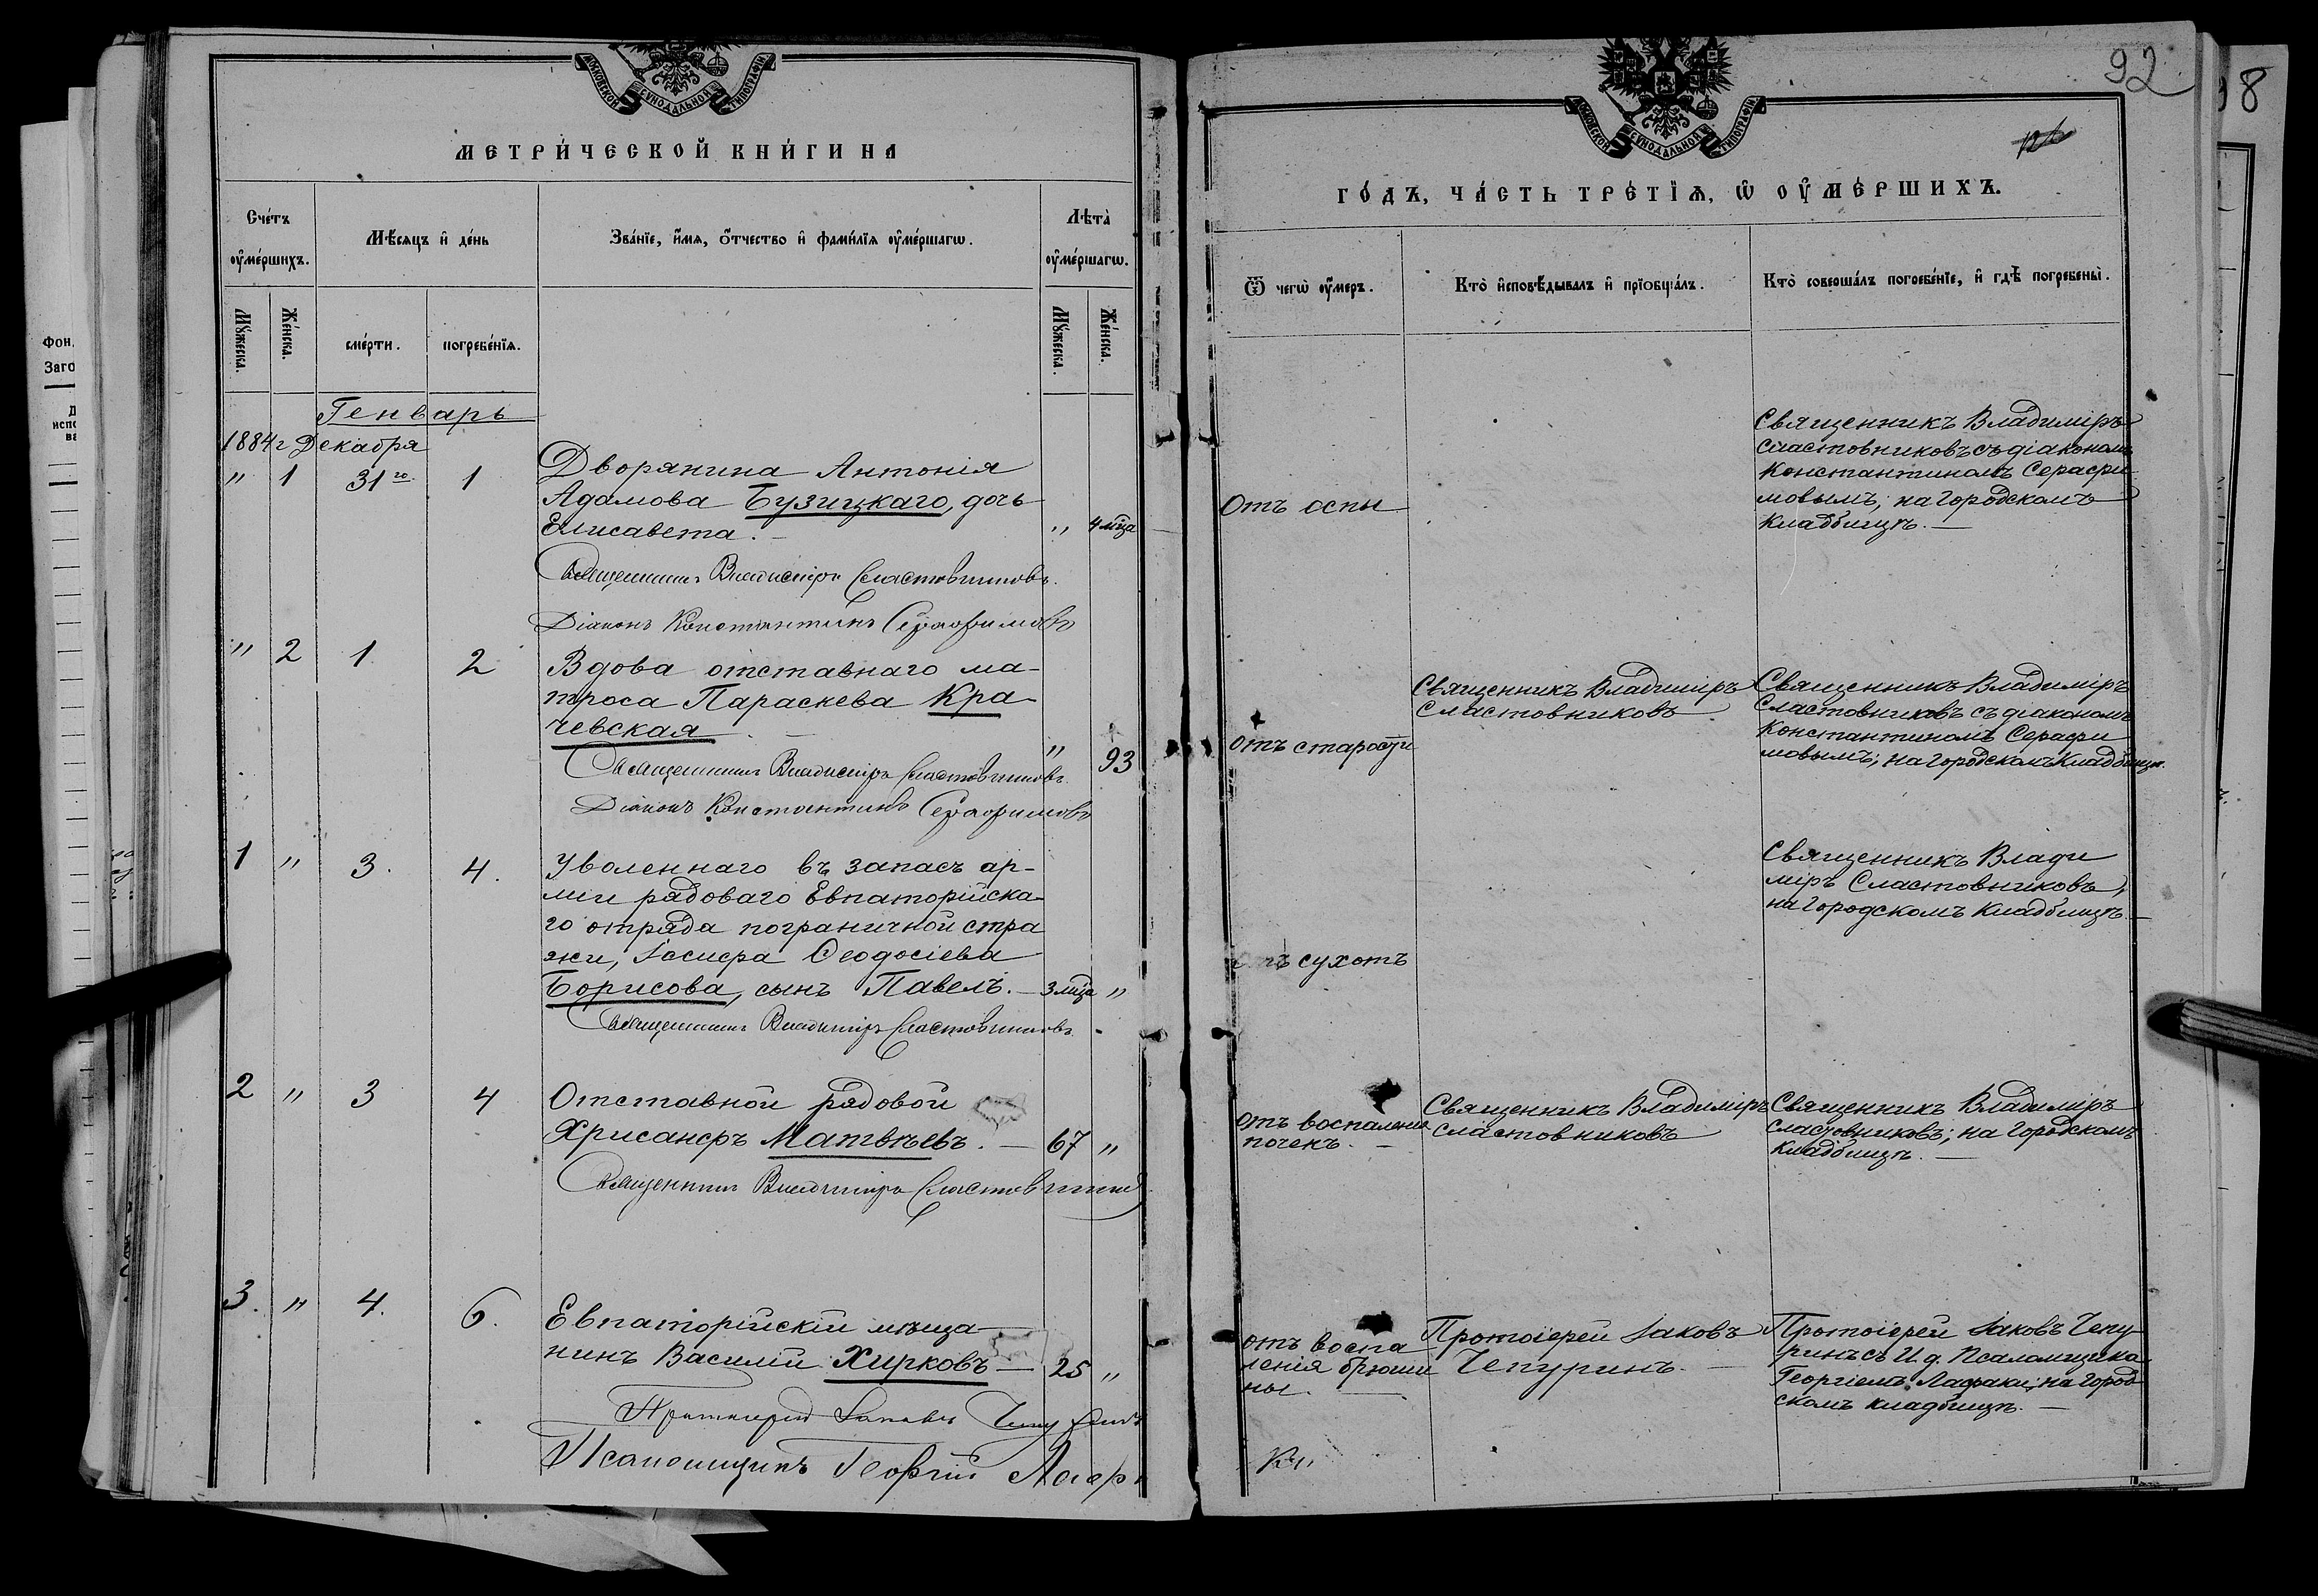 МОСКОВСКОЙ СУНОДАЛЬНОЙ ТИПОГРАФІИ
МЕТРИ́ЧЕСКОЙ КНИ́ГИ НА
Сче́тъ оу҆ме́ршихъ.
Мѣ́сяцъ и҆ де́нь
Зва́нїе, и҆́мя, ѻ҆́тчество и҆ фами́лїя оу҆ме́ршагѡ.
Лѣта̀ оу҆ме́ршагѡ.
Мꙋ́жеска.
Же́нска.
сме́рти.
погребе́нїя.
Мꙋ́жеска.
Же́нска.
Генварь
1884 г Декабря
" 1 31го 1
Дворянина Антонія
Адамова Бузицкаго, дочь
Елисавета. — " 4 мца
Священникъ Владиміръ Сластовниковъ.
Діаконъ Константинъ Серафимовъ
" 2 1 2
Вдова отставнаго ма-
троса Параскева Кра-
чевская. — " 93
Священникъ Владиміръ Сластовниковъ.
Діаконъ Константинъ Серафимовъ
1 " 3. 4.
Уволеннаго въ запасъ ар-
міи рядоваго Евпаторійска-
го отряда пограничной стра
жи, Іосифа Ѳеодосіева
Борисова, сынъ Павелъ. — 3 мца "
Священникъ Владиміръ Сластовниковъ.
2 " 3 4
Отставной рядовой
Хрисанфъ Матвѣевъ. — 67 "
Священникъ Владиміръ Сластовниковъ
3. " 4. 6.
Евпаторійскій мѣща-
нинъ Василій Хирковъ — 25 "
Протоіерей Іаковъ Чепуринъ
Псаломщикъ Георгій
92
98
МОСКОВСКОЙ СУНОДАЛЬНОЙ ТИПОГРАФІИ
ГО́ДЪ, ЧА́СТЬ ТРЕ́ТЇѦ, Ѡ҆ ОУ҆МЕ́РШИХЪ.
Ѿ чегѡ̀ оу҆́меръ.
Кто̀ и҆сповѣ́дывалъ и҆ прїобща́лъ.
Кто̀ соверша́лъ погребе́нїе, и҆ гдѣ̀ погребены̀.
Отъ оспы
Священникъ Владиміръ
Сластовниковъ съ діакономъ
Константиномъ Серафи
мовымъ; на городскомъ
кладбищѣ. —
отъ старости
Священникъ Владиміръ
Сластовниковъ
Священникъ Владиміръ
Сластовниковъ съ діакономъ
Константиномъ Серафи
мовымъ; на городскомъ кладбищѣ.
отъ сухотъ
Священникъ Влади
міръ Сластовниковъ,
на городскомъ кладбищѣ. —
отъ воспаленія
почекъ. —
Священникъ Владиміръ
Сластовниковъ
Священникъ Владиміръ
Сластовниковъ; на городскомъ
кладбищѣ. —
отъ воспа
ленія брюши
ны. —
Протоіерей Іаковъ
Чепуринъ. —
Протоіерей Іаковъ Чепу
ринъ съ И. д. Псаломщика
Георгіемъ Лафаки; на город
скомъ кладбищѣ. —